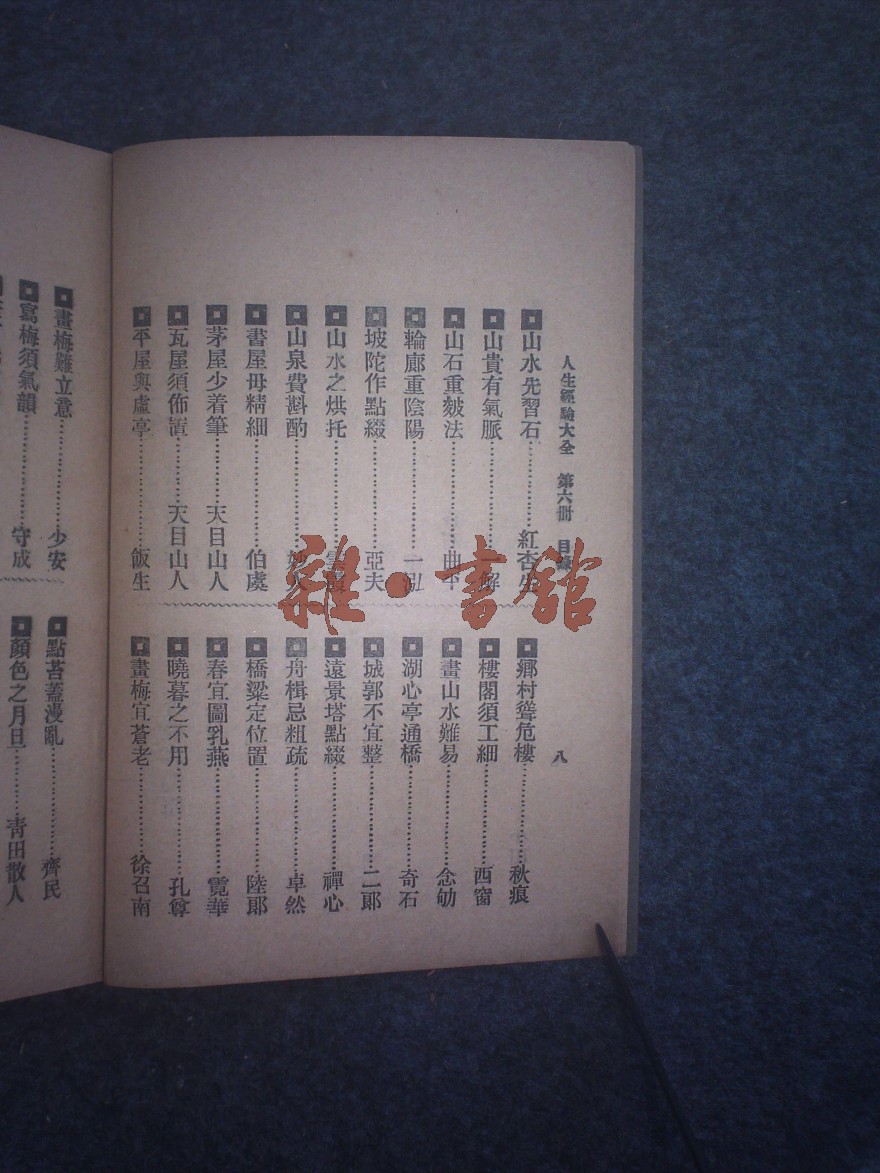 人生經驗大全 第六冊 目錄
八
山水先習石……紅杏生
山貴有氣脈……解
山石重皴法……曲平
輪廊重陰陽……一泓
坡陀作點綴……亞夫
山水之烘托……雲
山泉費斟酌……妙人
書屋毋精細……伯虞
茅屋少着筆……天目山人
瓦屋須佈置……天目山人
平屋與虛亭……飯生
鄉村聳危樓……秋痕
樓閣須工細……西窗
畫山水難易……念劬
湖心亭通橋……奇石
城郭不宜整……二郎
遠景塔點綴……禪心
舟楫忌粗疏……卓然
橋梁定位置……陸郎
春宜圖乳燕……霓華
曉暮之不用……孔尊
畫梅宜蒼老……徐召南
畫梅難立意……少安
寫梅須氣韻……守成
點苔蓋漫亂……齊民
顏色之月旦……青田散人
雜·書館